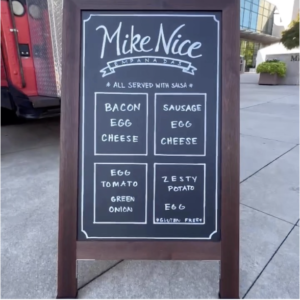 Mike Nice
EMPANADAS
* ALL SERVED WITH SALSA *
BACON
EGG
CHEESE
SAUSAGE
EGG
CHEESE
EGG
TOMATO
GREEN
ONION
ZESTY
POTATO
EGG
*GLUTEN FREE*
M